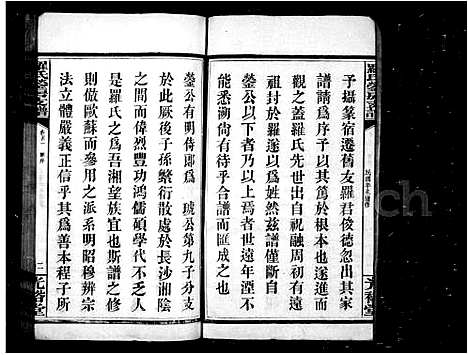 予攝篆宿遷舊友羅君俊德忽出其家
譜請爲序子以敦族於根本也遂進而
觀之蓋羅氏先世出自祝融周初初
祖封於羅遂以爲姓然茲譜僅斷自
鎣公以下而於以上焉者世遠年湮不
能悉泐倘合譜而匯成之也
鎣公有明侍郎爲 琥公第九子分支
於此厥後子孫繁衍散處於長沙湘陰
間而偉烈豐功鴻儒碩學代不乏人
是羅氏之爲吾湘望族宜也斯譜之修
仿歐蘇而參用之派系明昭穆辨宗
法立體嚴義正信乎其爲善本程子所
光裕堂